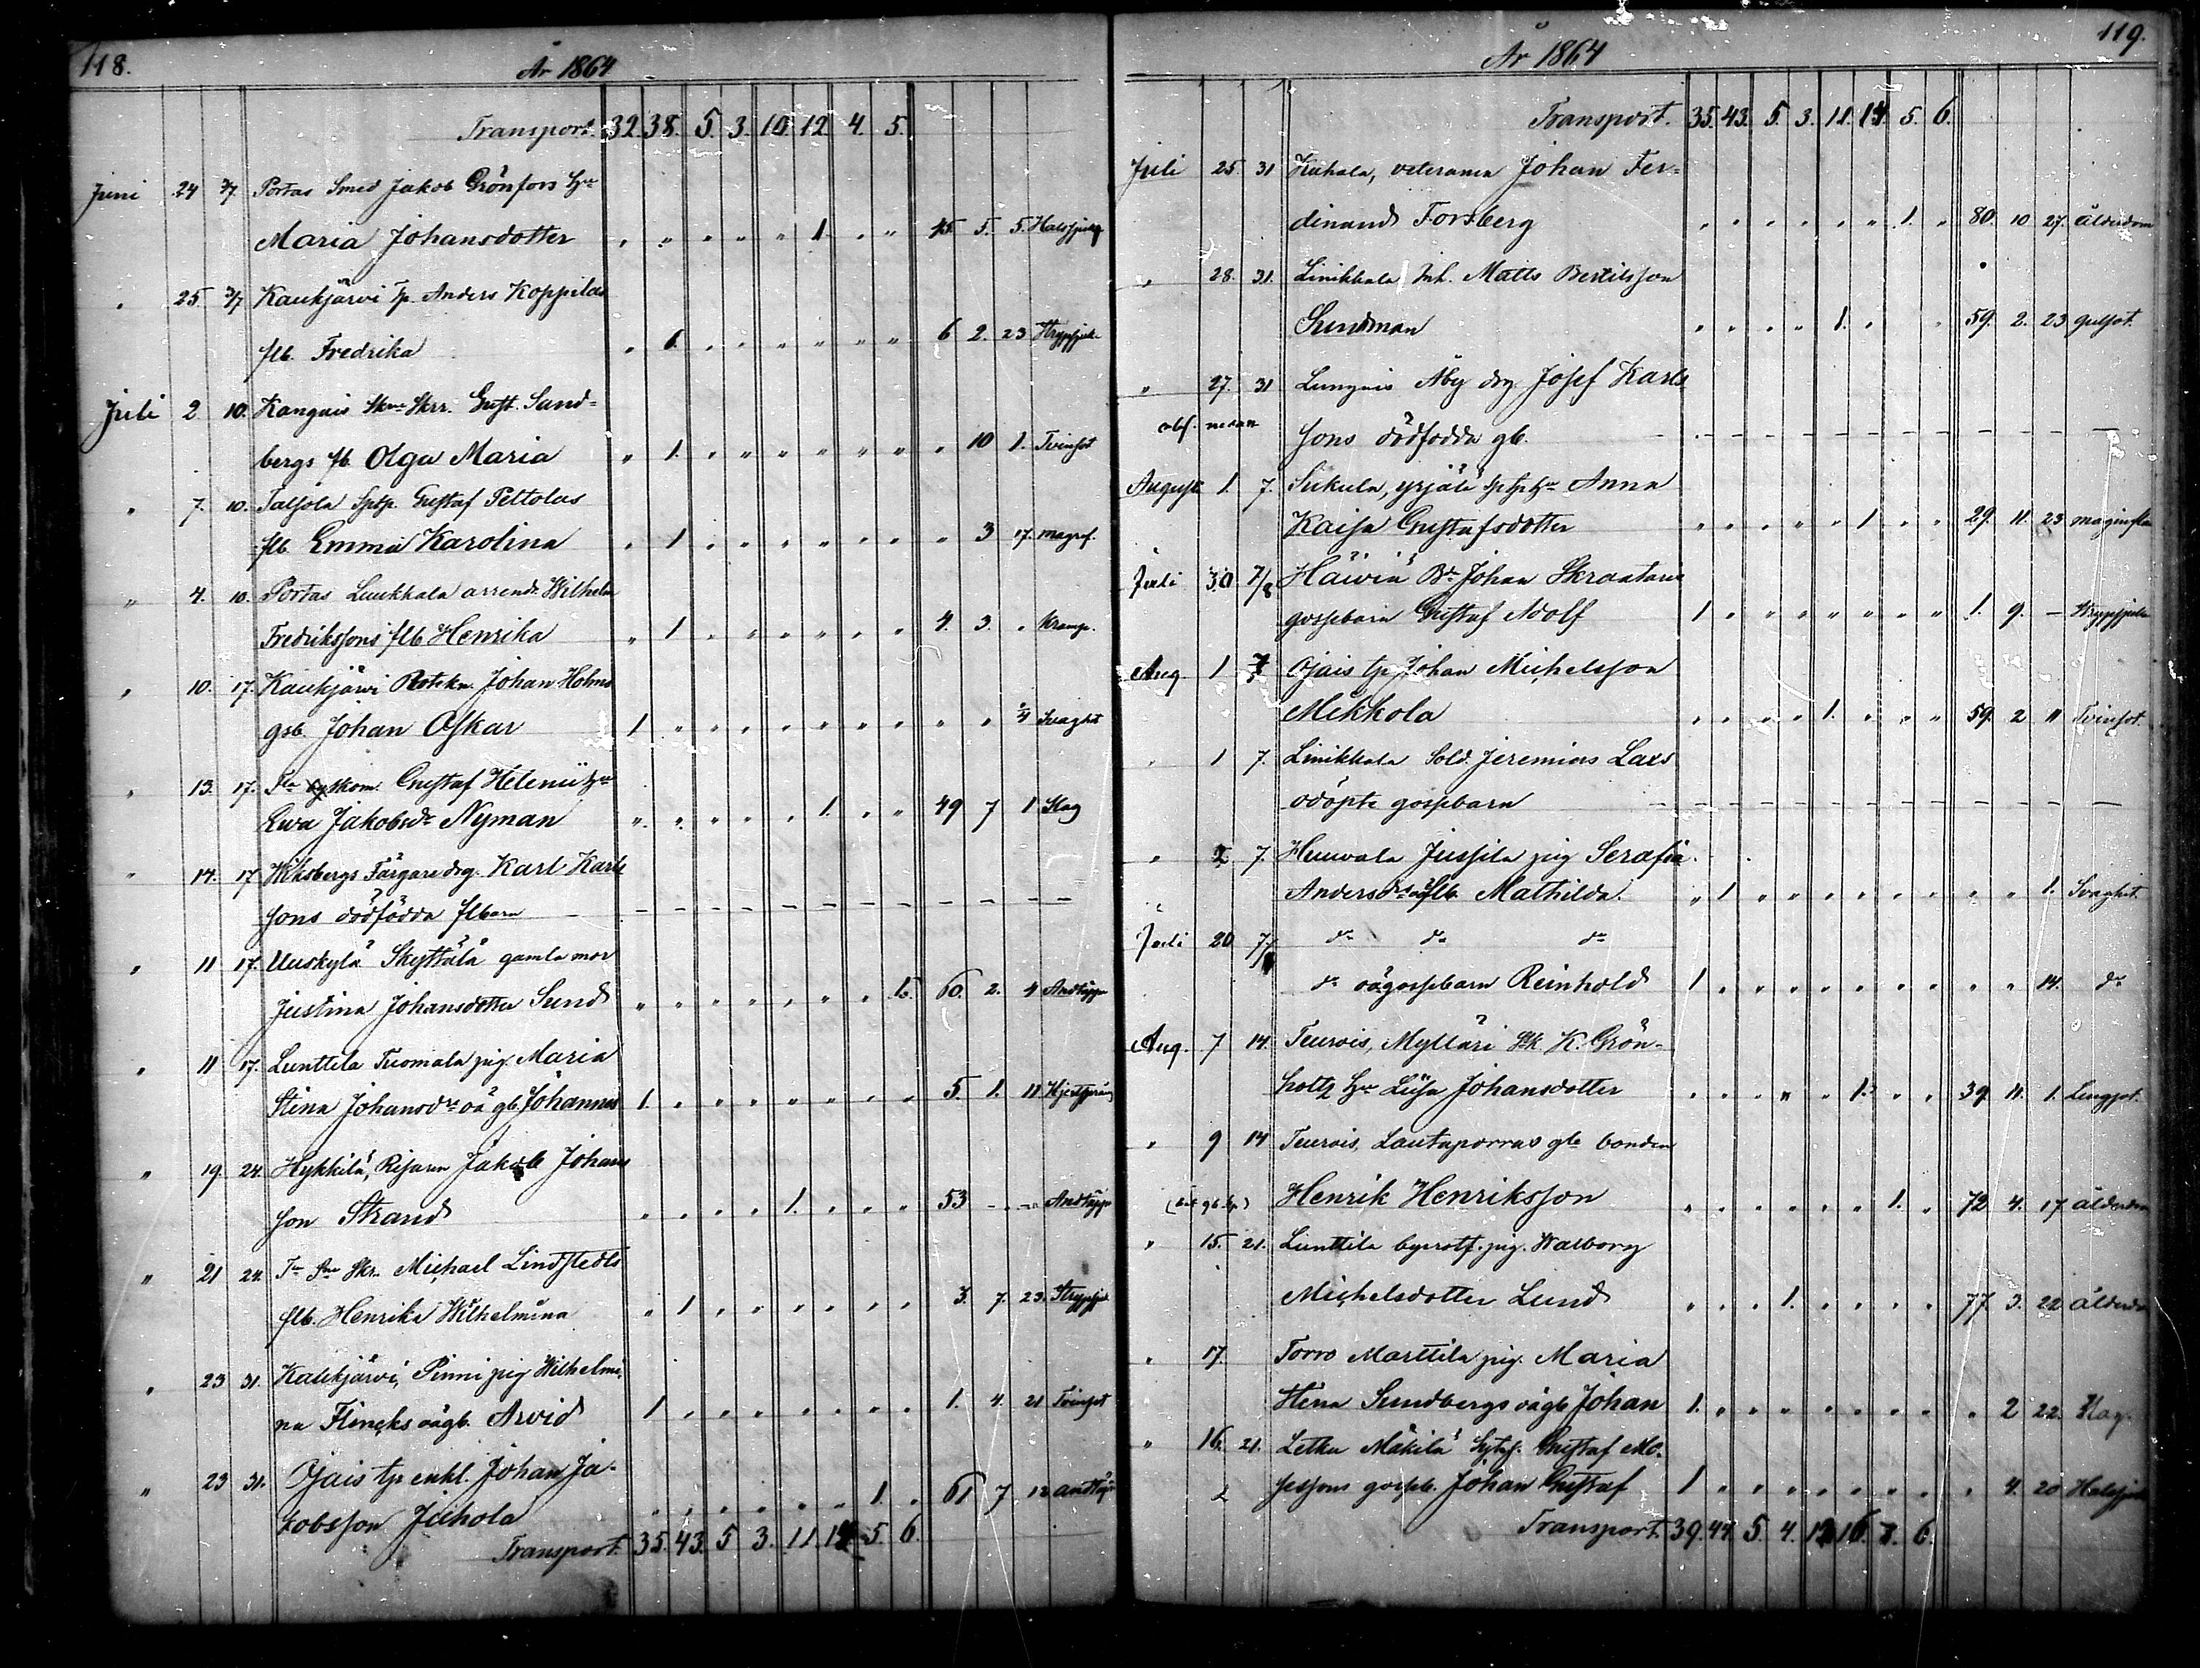 118.
År 1864
Transport. 32. 38. 5. 3. 10. 12 4. 5.
Juni 24 3/7 Portas Smed Jakob Grönfors Hu
Maria Johansdotter " " " " " 1 " " 45 5. 5. Halssjukd.
" 25. 3/7 Kaukjärvi Tp. Anders Koppilas
flb. Fredrika " 1. " " " " " " 6 2. 23 Strypsjuk.
Juli 2 10. Kangais Skrr. Gust. Sand-
bergs fb. Olga Maria " 1. " " " " " " " 10 1. Tvinsot
" 7. 10. Talsola Sptp. Gustaf Peltolas
flb. Emma Karolina " 1 " " " " " " " 3 17. magref.
" 4. 10. Portas Luukkala arrend. Wilhelm
Fredrikssons flb Henrika " 1 " " " " " " 4. 3. " Kramp.
" 10. 17. Kaukjärvi Johan Holms
gsb. Johan Oskar 1 " " " " " " " " " 4 Svaghet
" 13. 17. Gustaf Helenii Hu
Eva Jakobsdr Nyman " " " " " 1. " " 49 7 1 Slag
" 14. 17 Wiksbergs Färgare drg. Karl Karls
sons dödfödda flbarn – – – – – – – – – – –
" 11 17. Uuskylä Skyttälä gamla mor
Justina Johansdotter Sund " " " " " " " 1. 60. 2. 4 Andtäppa
" 11 17. Lunttila Tuomala pig. Maria
Stina Johansdrs oä gb. Johannes 1. " " " " " " " 5. 1. 11
" 19. 24. Hykkilä, Jakob Johans
son Strand " " " " 1. " " " 53 – – Andtäppa
" 21 24. Skr. Michael Lindstedts
flb. Henrika Wilhelmina " 1 " " " " " " 3. 7. 23. Strypsjuk.
" 23 31. Kaukjärvi, Pinni pig Wilhelmi-
na Flincks oägb. Arvid 1 " " " " " " " 1. 4. 21 Tvinsot
" 23 31. Ojais tp enkl. Johan Ja-
kobsson Juhola " " " " " " 1. " 61 7 12 andtäppa
Transport. 35. 43. 5 3. 11. 14 5. 6.
119.
År 1864
Transport. 35. 43. 5. 3. 11. 14. 5. 6.
Juli 25 31 Kuhala, veteranen Johan Fer-
dinand Forsberg " " " " " " 1. " 80. 10 27. ålderdom
" 28. 31. Linikkala Inh. Matts Bertilsson
Sundman " " " " 1. " " 59. 2. 23 gulsot.
" 27. 31 Lunguis Åby drg Josef Karls
obs. nedan sons dödfödda gb. – – – – – – – – – – –
Augusti 1. 7. Sukula, yrjälä Hu Anna
Kaisa Gustafsdotter " " " " " 1 " " 29. 11. 23
Juli 30 7/8 Häiviä Br Johan Skraatans
gossebarn Gustaf Adolf 1 " " " " " " " 1. 9. – Strypsjuka
Aug. 1 7 Ojais tp Johan Michelsson
Mikkola " " " " 1. " " " 59. 2 11 Tvinsot.
" 1 7. Linikkala Sold. Jeremias Laxs
odöpte gossebarn – – – – – – – – – – –
" 2 7. Huuvala Jussila pig Serafia
Andersdrs oäflb. Mathilda. " 1 " " " " " " " " 1. Svaghet.
Juli 20 7/8 do do do
do oägossebarn Reinhold 1 " " " " " " " " " 14. do
Aug. 7 14. Teurois, Mylläri K. Grön-
holtz Hu Liisa Johansdotter " " " " " 1. " " 39. 11. 1. Lungsot.
" 9 14 Teurois, Lautaporras gle bonden
Henrik Henriksson " " " " " " 1. " 72 4. 17 ålderdom
" 15. 21. Lunttila byerotf. pig. Walborg
Michelsdotter Lund " " " 1. " " " " 77. 3. 22 ålderdom
" 17. Torro Marttila pig. Maria
Stina Sundbergs oägb. Johan 1. " " " " " " " " 2 22. Slag.
" 16. 21. Letku Mäkilä Gustaf Mo-
sessons gosseb. Johan Gustaf 1 " " " " " " " " 4. 20 Halssjuk
Transport. 39. 44. 5. 4. 12 16. 7. 6.